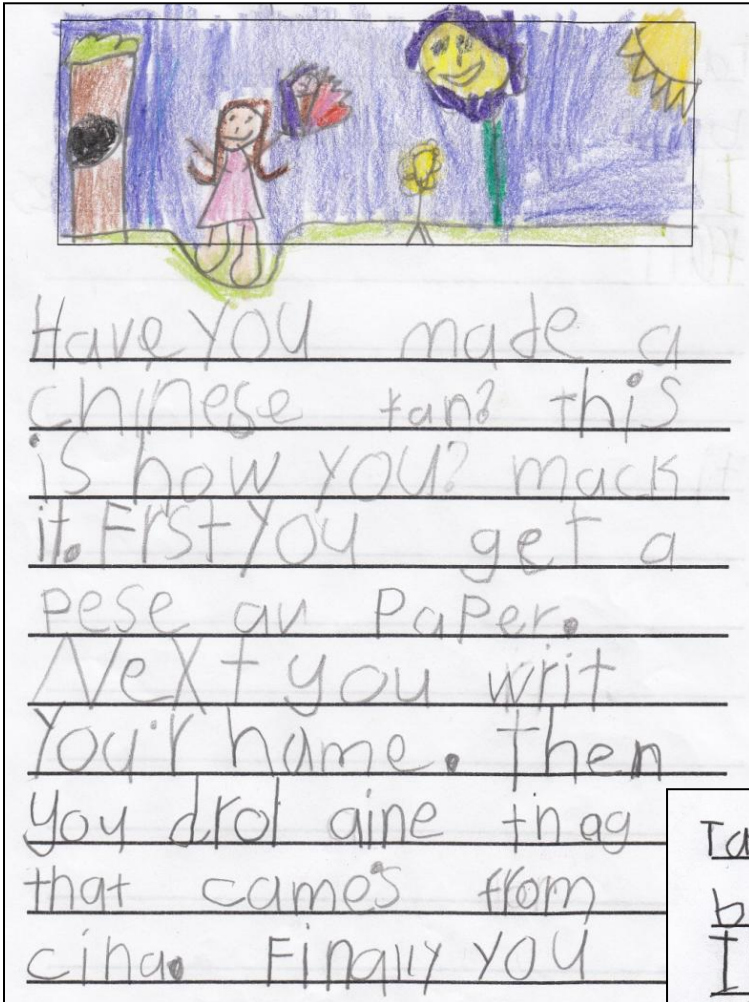 Have you made a
chinese fan? this
is how you? mack
it. Frst you get a
pese av Paper.
Next you writ
you'r name. Then
you drol aine thag
that came's from
cina. Finally you
Ta
b
I